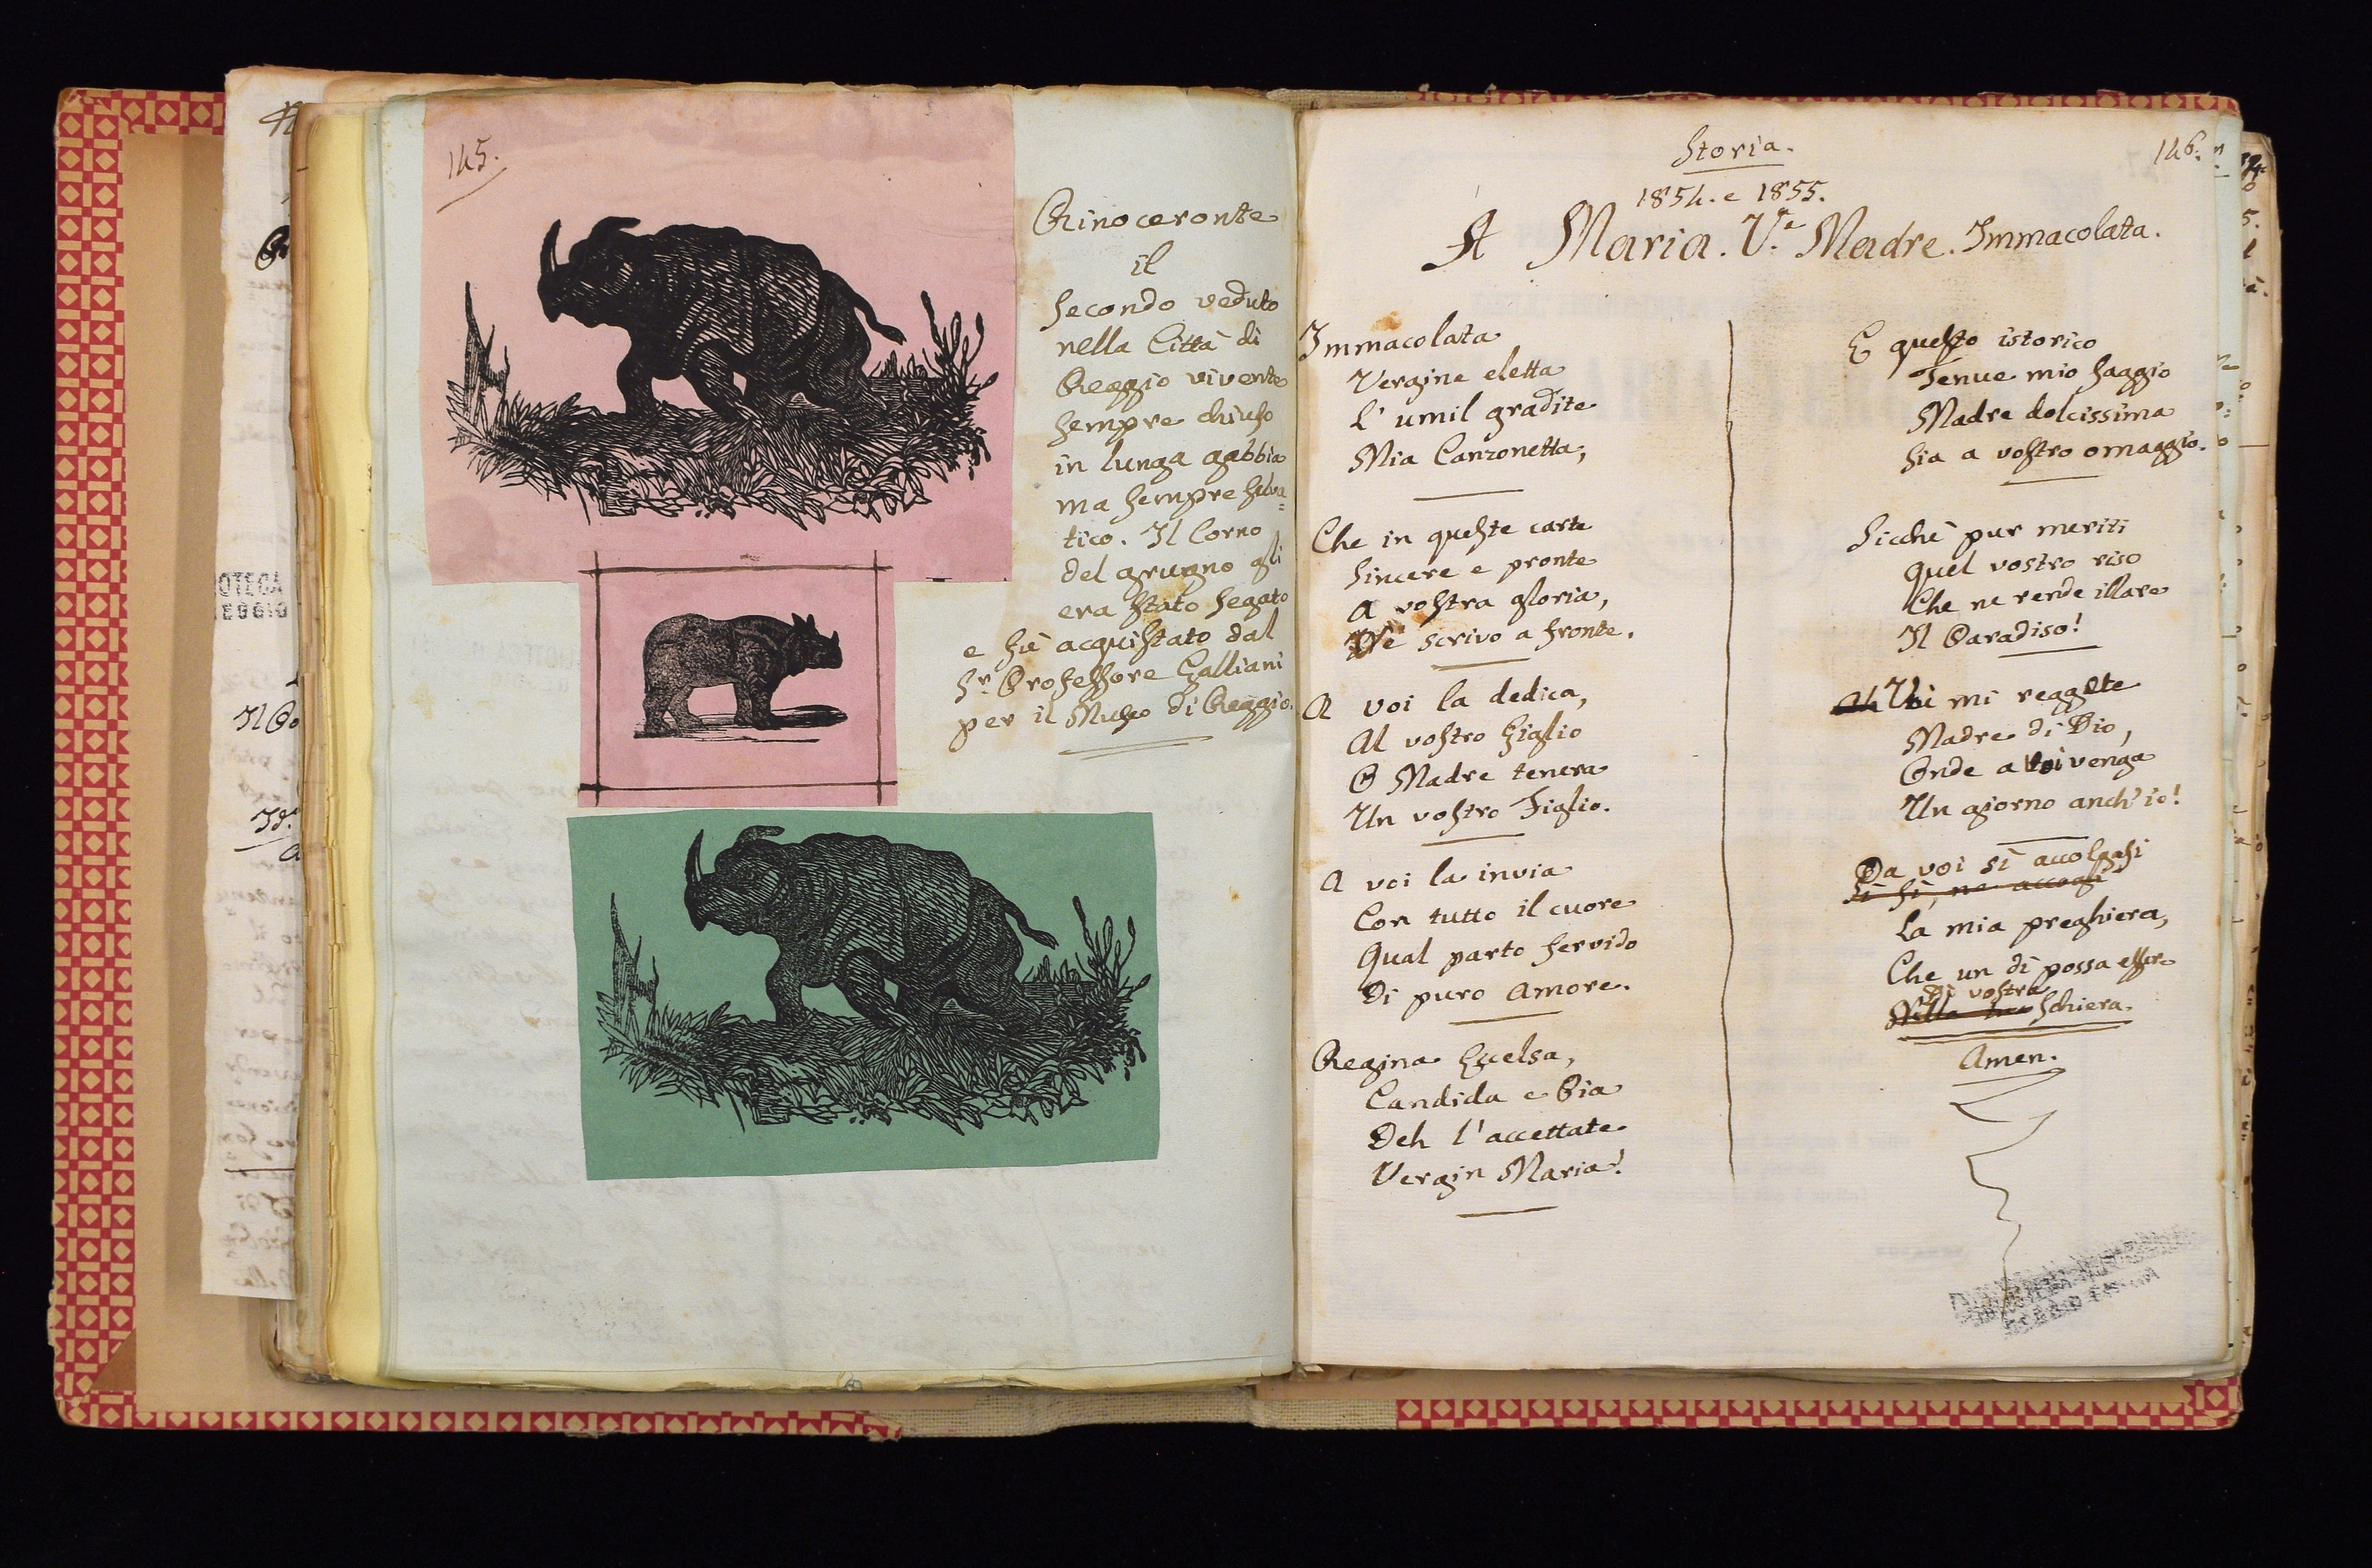 145.
Rinoceronte
il
Secondo veduto
nella Città di
Reggio vivente
Sempre chiuso
in lunga gabbia
ma sempre selva=
tico. Il Corno
del grugno gli
era stato segato
e fù acquistato dal
Sr. Professore Galliani
per il Museo di Reggio.
Storia.
146.
1854. e 1855.
A Maria. Ve. Madre. Immacolata.
Immacolata
Vergine eletta
L'umil gradite
Mia Canzonetta;
Che in queste carte
Sincere e pronte
A vostra gloria,
Ve scrivo a fronte.
A voi la dedica,
Al vostro Figlio
O Madre tenera
Un vostro Figlio.
A voi la invia
Con tutto il cuore
Qual parto fervido
Di puro Amore.
Regina Eccelsa,
Candida e Pia
Deh l'accettate
Vergin Maria!
E questo istorico
Tenue mio saggio
Madre dolcissima
Sia a vostro omaggio.
Sicchè pur meriti
Quel vostro riso
Che ne rende illare
Il Paradiso!
Ah Voi mi reggete
Madre di Dio,
Onde a Voi venga
Un giorno anch'io!
Da voi sì accolgasi
Sì sì, ne accogli
La mia preghiera,
Che un dì possa essere
Di vostra
Nella tua Schiera.
Amen.
OTECA
EGGIO